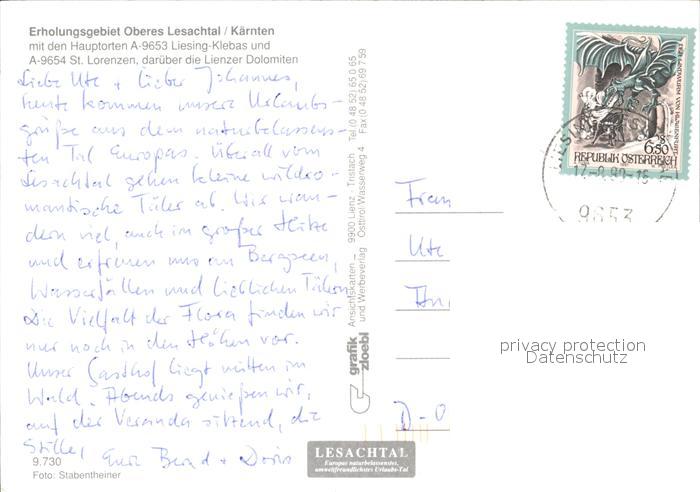 Erholungsgebiet Oberes Lesachtal / Kärnten
mit den Hauptorten A-9653 Liesing-Klebas und
A-9654 St. Lorenzen, darüber die Lienzer Dolomiten
Liebe Ute + lieber Johannes,
heute kommen unsere Urlaubs-
grüße aus dem naturbelassens-
ten Tal Europas. Überall vom
Lesachtal gehen kleine wildro-
mantische Täler ab. Wir wan-
dern viel, auch in großer Hitze
und erfreuen uns an Bergseen,
Wasserfällen und lieblichen Tälern.
Die Vielfalt der Flora finden wir
nur noch in den Höhen vor.
Unser Gasthof liegt mitten im
Wald. Abends genießen wir,
auf der Veranda sitzend, die
Stille,
Eure Bernd + Doris
9.730
Foto: Stabentheiner
grafik
zloebl
Ansichtskarten – 9900 Lienz, Tristach Tel (0 48 52) 65 0 65
und Werbeverlag Osttirol, Wasserweg 4 Fax (0 48 52) 69 7 59
LESACHTAL
Europas naturbelassenstes,
umweltfreundlichstes Urlaubs-Tal
DER LINDWURM VON KLAGENFURT
6.50
REPUBLIK ÖSTERREICH
LIESING
9653
Frau
Ute
D-0
privacy protection
Datenschutz